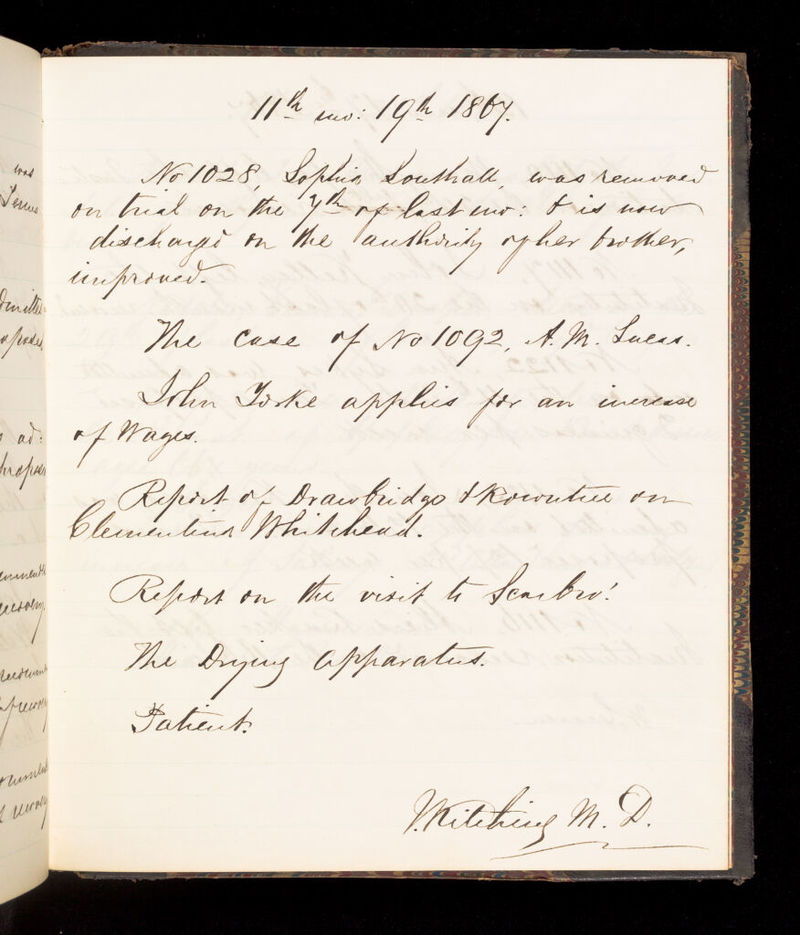 11th mo: 19th 1867.
No 1028, Sophia Southall, was removed
on trial on the 7th of last mo: & is now
discharg'd on the authority of her brother,
improved.
The case of No 1092, A. M. Luess.
John Yorke applies for an increase
of Wages.
Report of Drawbridge & Rowntree on
Clementina Whitehead.
Report on the visit to Scarbro'.
The Drying Apparatus.
Patient.
J. Kitching M. D.
was
admitted
ad: